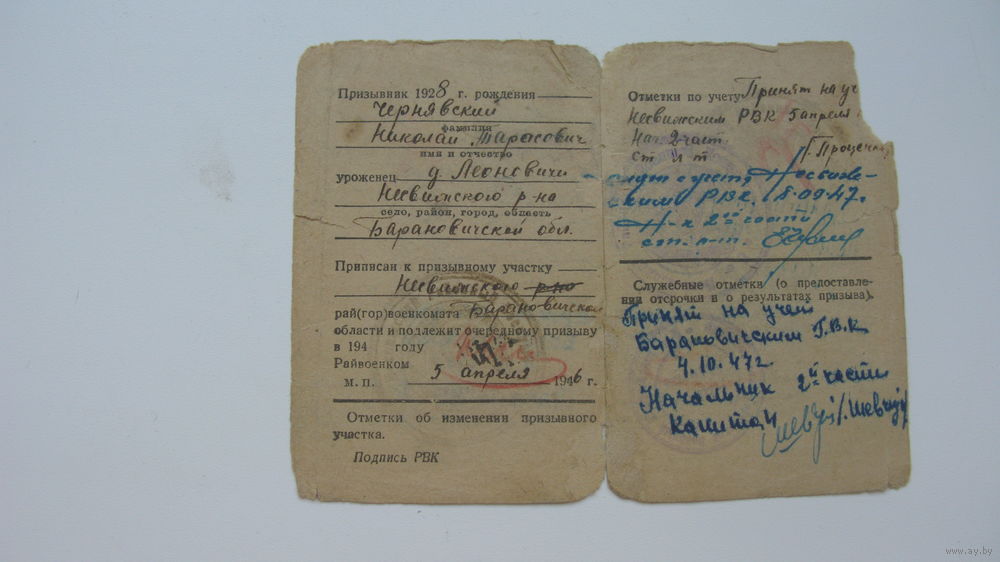 Призывник 1928 г. рождения
Чернявский
фамилия
Николай Тарасович
имя и отчество
уроженец д. Леоновичи
Несвижского р-на
село, район, город, область
Барановичской обл.
Приписан к призывному участку
Несвижского р-на
рай(гор)военкомата Барановичской
области и подлежит очередному призыву
в 194 году
Райвоенком
м. п. 5 апреля 1946 г.
Отметки об изменении призывного
участка.
Подпись РВК
Отметки по учету Принят на уч
Несвижским РВК 5 апреля
Нач 2 част
ст л-т Проценко
снят с учета Несвиж-
ским РВК. 18.09.47г.
Н-к 2ой части
ст. л-т.
Служебные отметки (о предоставле-
нии отсрочки и о результатах призыва).
Принят на учет
Барановичским Г.В.К
4.10.47г.
Начальник 2й части
Капитан
www.ay.by